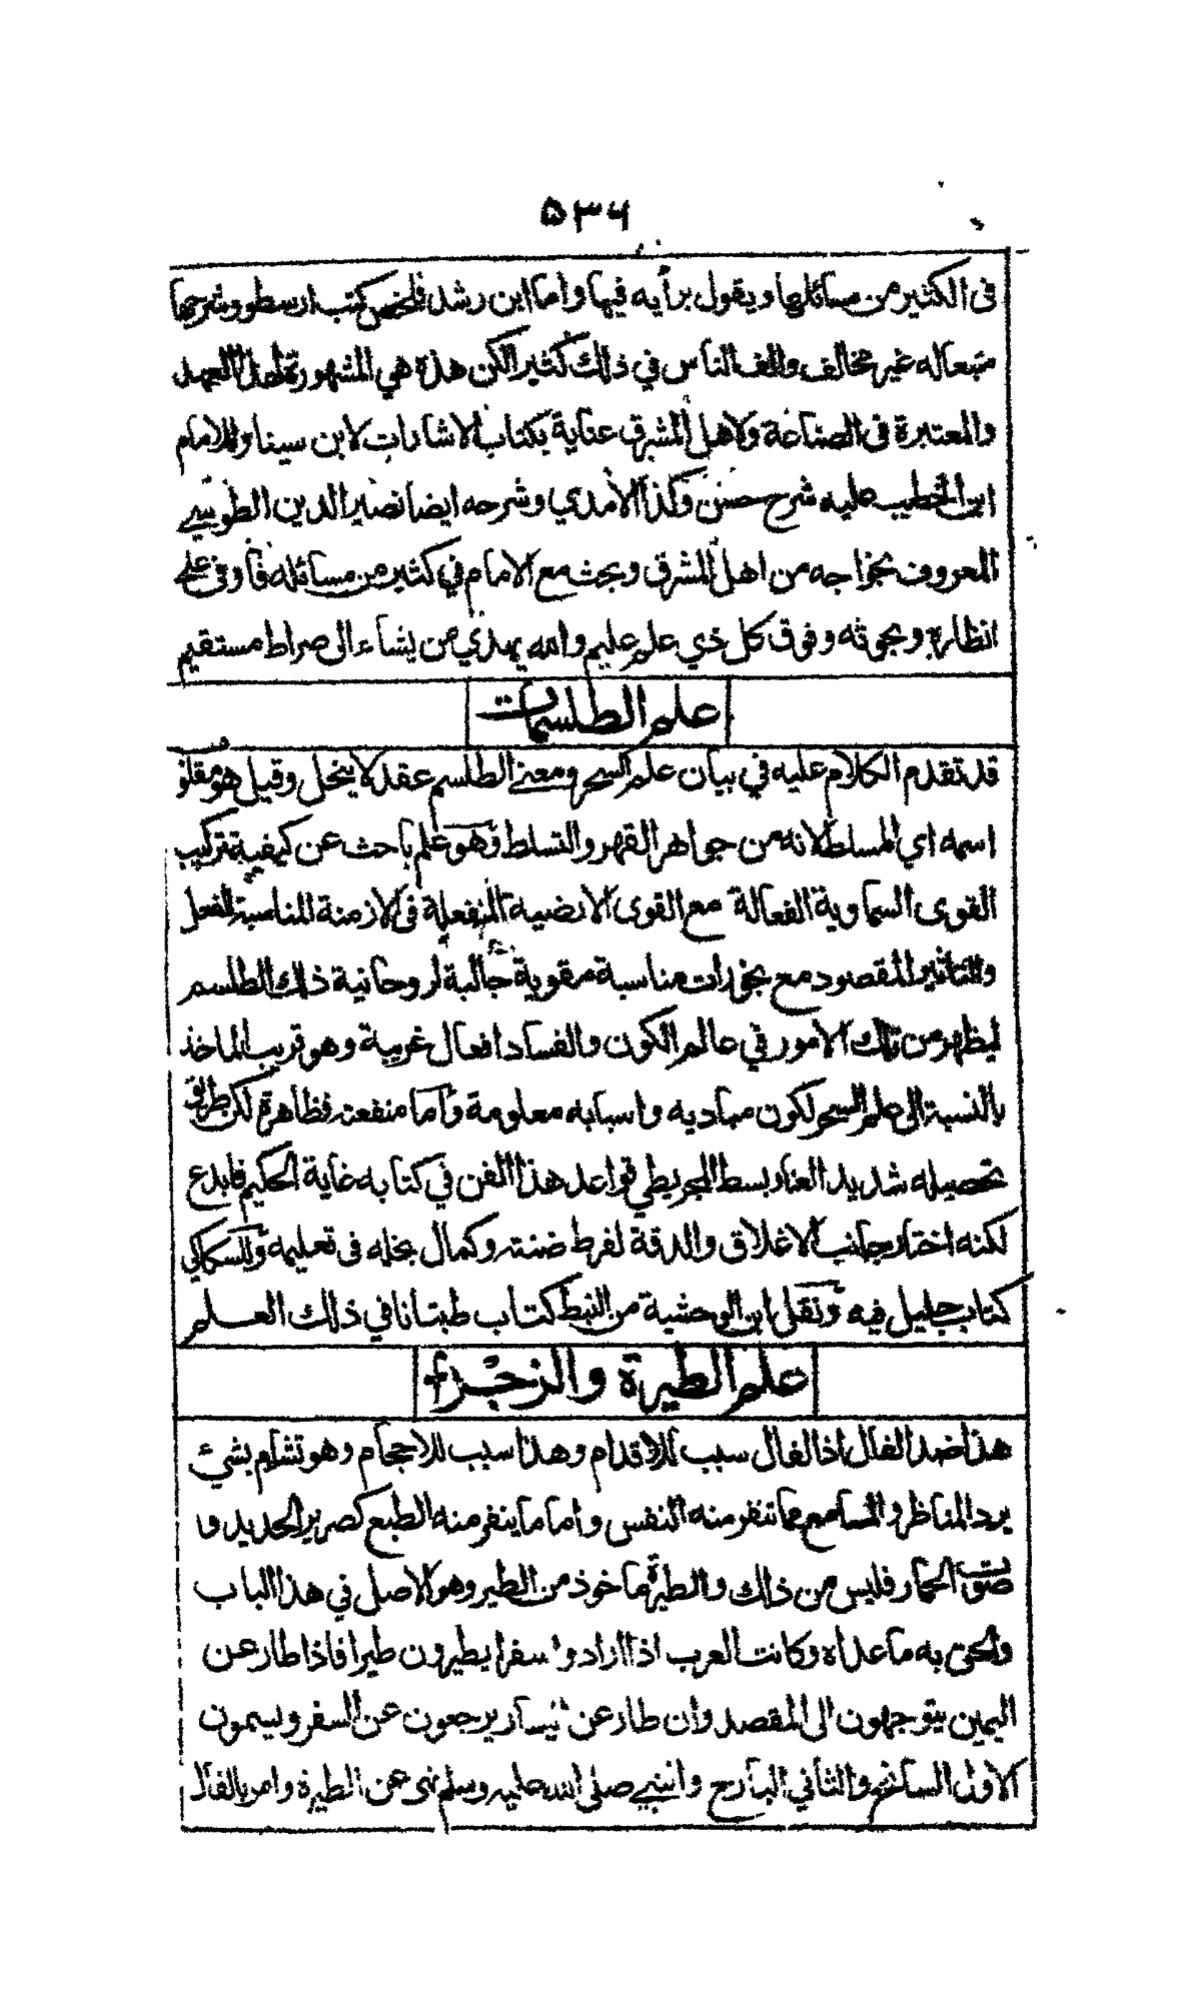 ۵۳۶
فى الكثير من مسائلها ويقول برأيه فيها واما ابن رشد فلخص كتب ارسطو وشرحها
متبعا له غير مخالف والف الناس في ذلك كثيرا لكن هذه هي المشهورة لهذا العهد
والمعتبرة فى الصناعة ولاهل المشرق عناية بكتاب الاشارات لابن سينا وللامام
ابن الخطيب عليه شرح حسن وكذا الآمدي وشرحه ايضا نصير الدين الطوسي
المعروف بخواجه من اهل المشرق وبحث مع الامام في كثير من مسائله فاوفى على
انظاره وبحوثه وفوق كل ذي علم عليم والله يهدي من يشاء الى صراط مستقيم
علم الطلسمات
قد تقدم الكلام عليه في بيان علم السحر ومعنى الطلسم عقد لا ينحل وقيل هو مقلوب
اسمه اي المسلط لانه من جواهر القهر والتسلط وهو علم باحث عن كيفية تركيب
القوى السماوية الفعالة مع القوى الارضية المنفعلة فى الازمنة المناسبة للفعل
والتاثير المقصود مع بخورات مناسبة مقوية جالبة لروحانية ذلك الطلسم
ليظهر من تلك الامور في عالم الكون والفساد افعال غريبة وهو قريب الماخذ
بالنسبة الى علم السحر لكون مباديه واسبابه معلومة واما منفعته فظاهرة لكن طريق
تحصيله شديد العنا وبسط المجريطي قواعد هذا الفن في كتابه غاية الحكيم فابدع
لكنه اختار جانب الاغلاق والدقة لفرط ضنته وكمال بخله فى تعليمه وللسكاكي
كتاب جليل فيه ونقل ابن الوحشية من النبط كتاب طبتانا في ذلك العلم
علم الطيرة والزجر
هذا ضد الفال اذا الفال سبب للاقدام وهذا سبب للاحجام وهو تشاؤم بشيء
يرد المناظر والمسامع مما تنفر منه النفس واما ما ينفر منه الطبع كصرير الحديد و
صوت الحمار فليس من ذلك والطيرة ماخوذ من الطير وهو الاصل في هذا الباب
والحق به ما عداه وكانت العرب اذا ارادوا سفرا يطيرون طيرا فاذا طار عن
اليمين يتوجهون الى المقصد وان طار عن يسار يرجعون عن السفر ويسمون
الاول السانح والثاني البارح والنبي صلى الله عليه وسلم نهى عن الطيرة وامر بالفال